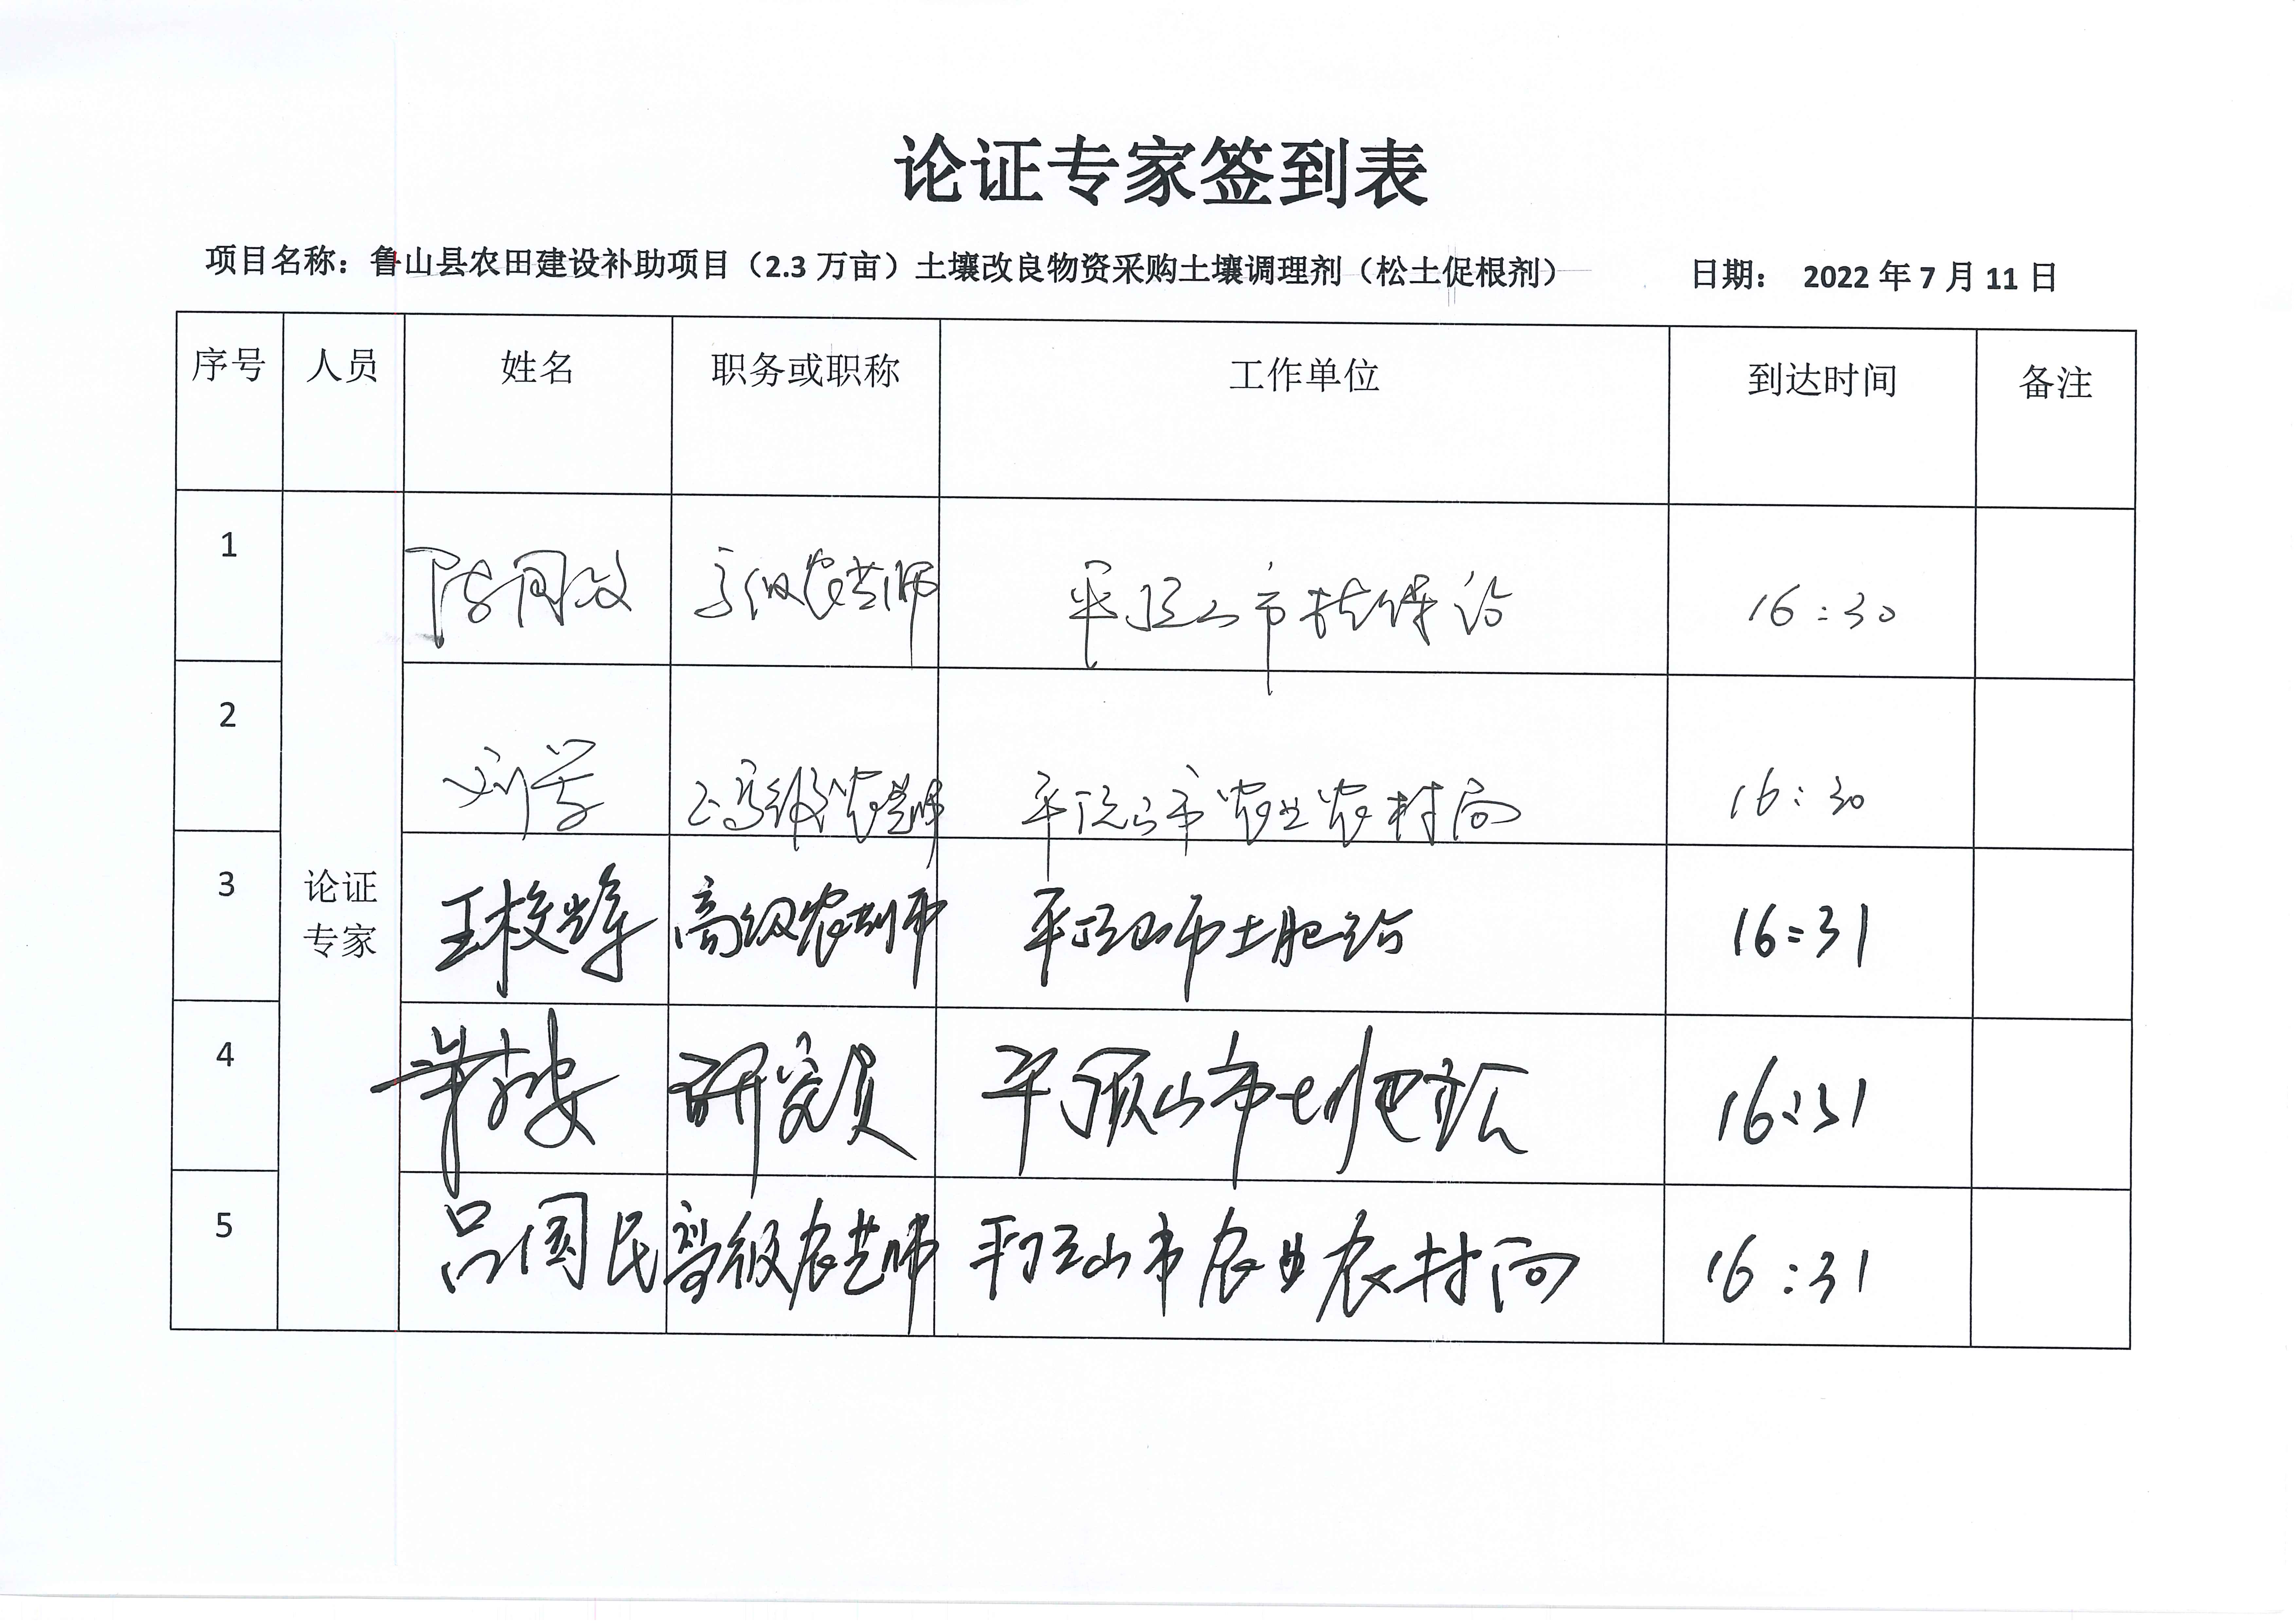 论证专家签到表
项目名称：鲁山县农田建设补助项目（2.3 万亩）土壤改良物资采购土壤调理剂（松土促根剂） 日期： 2022 年 7 月 11 日
序号 人员 姓名 职务或职称 工作单位 到达时间 备注
1 高级农艺师 平顶山市植保站 16:30
2 刘 正高级农艺师 平顶山市农业农村局 16:30
论证
专家
3 王校辉 高级农艺师 平顶山市土肥站 16:31
4 研究员 平顶山市土肥站 16:31
5 吕国民 高级农艺师 平顶山市农业农村局 16:31